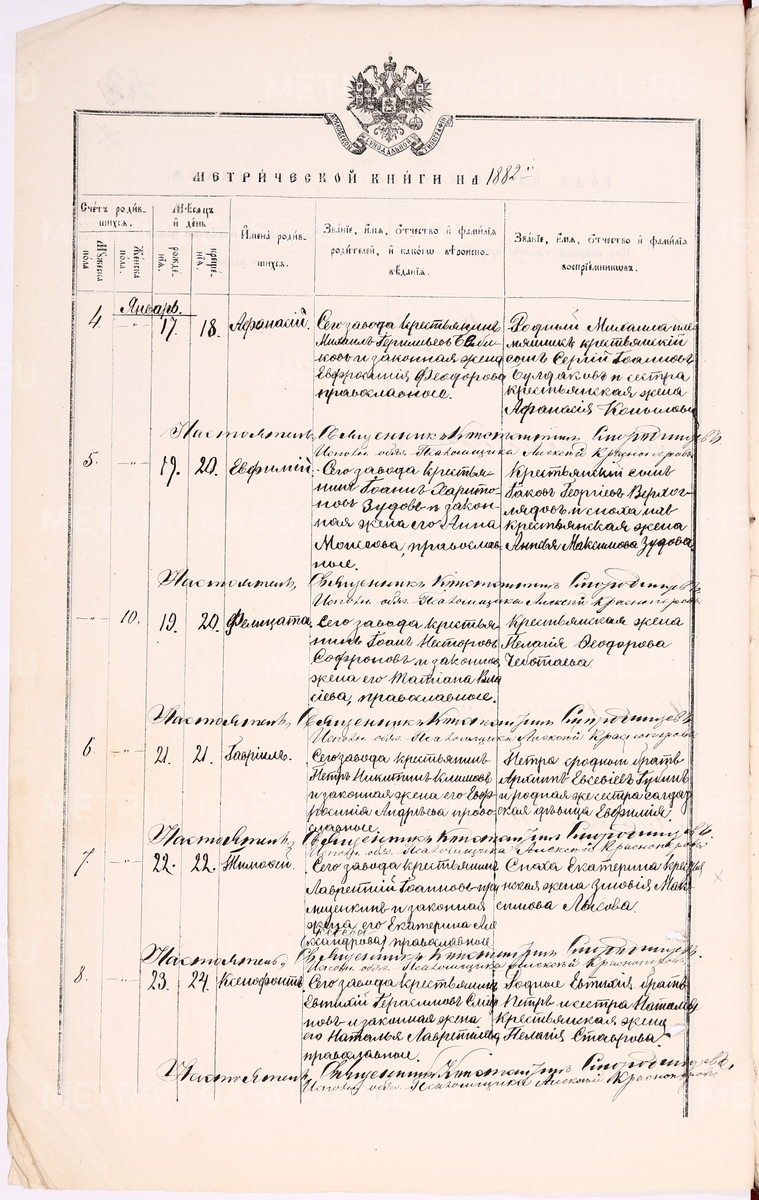 МОСКОВСКОЙ СѴНОДАЛЬНОЙ ТИПОГРАФІИ
МЕТРИЧЕСКОЙ КНИГИ НА 1882 г.
Счетъ родившихся.
Мужеска пола
Женска пола.
Мѣсяцъ и день
рожденія.
крещенія.
Имена родившихся.
Званіе, имя, отчество и фамилія родителей, и какого вѣроисповѣданія.
Званіе, имя, отчество и фамилія воспріемниковъ.
Январь.
4. -"- 17. 18. Афанасій.
Сего завода крестьянинъ
Михаилъ
и законная жена
Евфросинія Ѳеодорова
православные.
Родный Михаила пле-
мянникъ крестьянскій
сынъ Сергій Іоанновъ
Булдаковъ и сестра
крестьянская жена
Афанасія
Настоятель, Священникъ Константинъ Смородинцевъ
Исполн. обяз. Псаломщика Алексій Красноперовъ
5. -"- 19. 20. Евфимій.
Сего завода крестья-
нинъ Іоаннъ Харито-
новъ Зудовъ и закон-
ная жена его Анна
Моисеова, православ-
ные.
Крестьянскій сынъ
Іаковъ Георгіевъ Верхог-
лядовъ и сноха
крестьянская жена
Максимова Зудова.
Настоятель, Священникъ Константинъ Смородинцевъ
Исполн. обяз. Псаломщика Алексій Красноперовъ
-"- 10. 19. 20. Фелицата.
Сего завода крестья-
нинъ Іоаннъ Несторовъ
Софроновъ и законная
жена его Татіана Вла-
сіева, православные.
Крестьянская жена
Пелагія Ѳеодорова
Чеботаева.
Настоятель, Священникъ Константинъ Смородинцевъ
Исполн. обяз. Псаломщика Алексій Красноперовъ
6 -"- 21. 21. Гавріилъ.
Сего завода крестьянинъ
Петръ Никитинъ Климовъ
и законная жена его Евф-
росинія Андреева право-
славные.
Петра сродный братъ
Архиппъ Евсевіевъ
и родная же сестра солдат-
ская дѣвица Евфимія.
Настоятель, Священникъ Константинъ Смородинцевъ.
Исполн. обяз. Псаломщика Алексій Красноперовъ
7. -"- 22. 22. Тимоѳей.
Сего завода крестьянинъ
Лаврентій Іоанновъ
и законная
жена его Екатерина Але-
ксандрова) православные
Сноха Екатерина кресть-
янская жена Зиновія Мак-
симова Лыкова.
Настоятель, Священникъ Константинъ Смородинцевъ.
Исполн. обяз. Псаломщика Алексій Красноперовъ
8. -"- 23. 24. Ксенофонтъ.
Сего завода крестьянинъ
Евтихій Герасимовъ
и законная жена
его Наталья Лаврентіева,
православные.
Родные Евтихія братъ
Петръ и сестра Натальи
крестьянская жена
Пелагія Ставрова.
Настоятель, Священникъ Константинъ Смородинцевъ.
Исполн. обяз. Псаломщика Алексій Красноперовъ